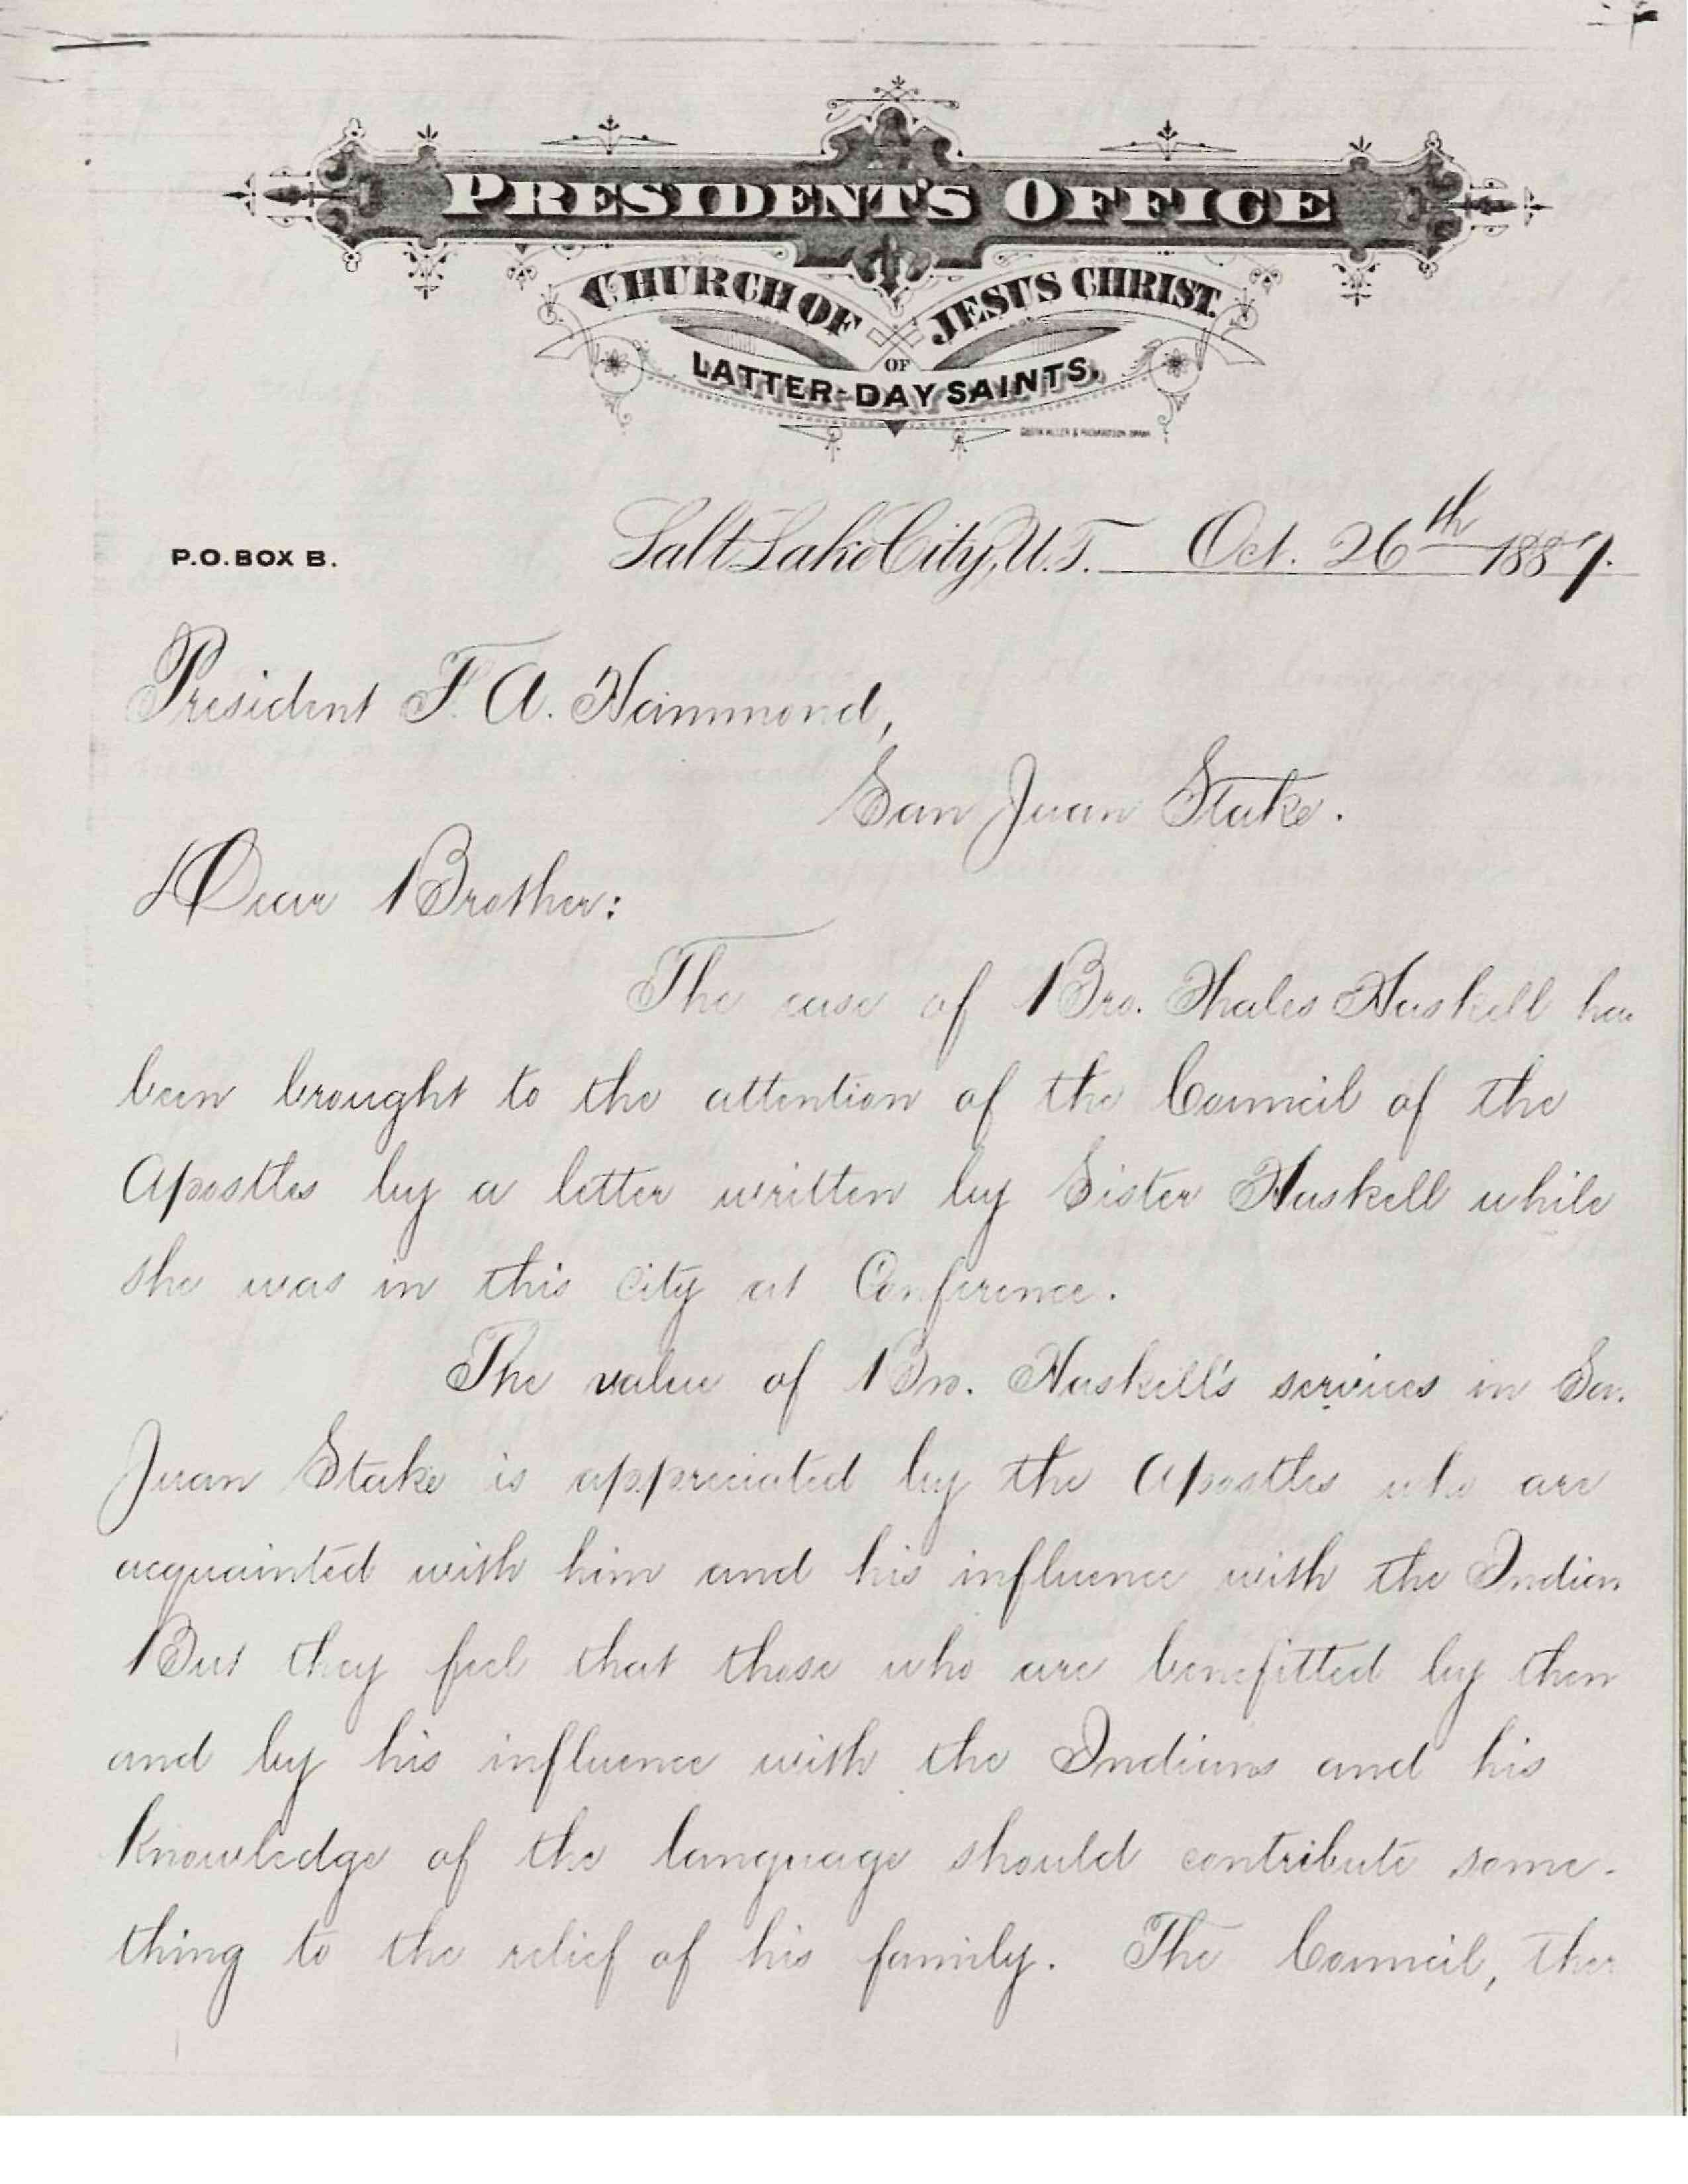 PRESIDENT'S OFFICE
CHURCH OF JESUS CHRIST.
OF
LATTER-DAY SAINTS.
P.O. BOX B.
Salt Lake City, U.T. Oct. 26th 1887.
President F. A. Hammond,
San Juan Stake.
Dear Brother:
The case of Bro. Thales Haskell ha
been brought to the attention of the Council of the
Apostles by a letter written by Sister Haskell while
she was in this city at Conference.
The value of Bro. Haskell's services in San
Juan Stake is appreciated by the Apostles who are
acquainted with him and his influence with the Indian
But they feel that those who are benefitted by them
and by his influence with the Indians and his
knowledge of the language should contribute some-
thing to the relief of his family. The Council, ther